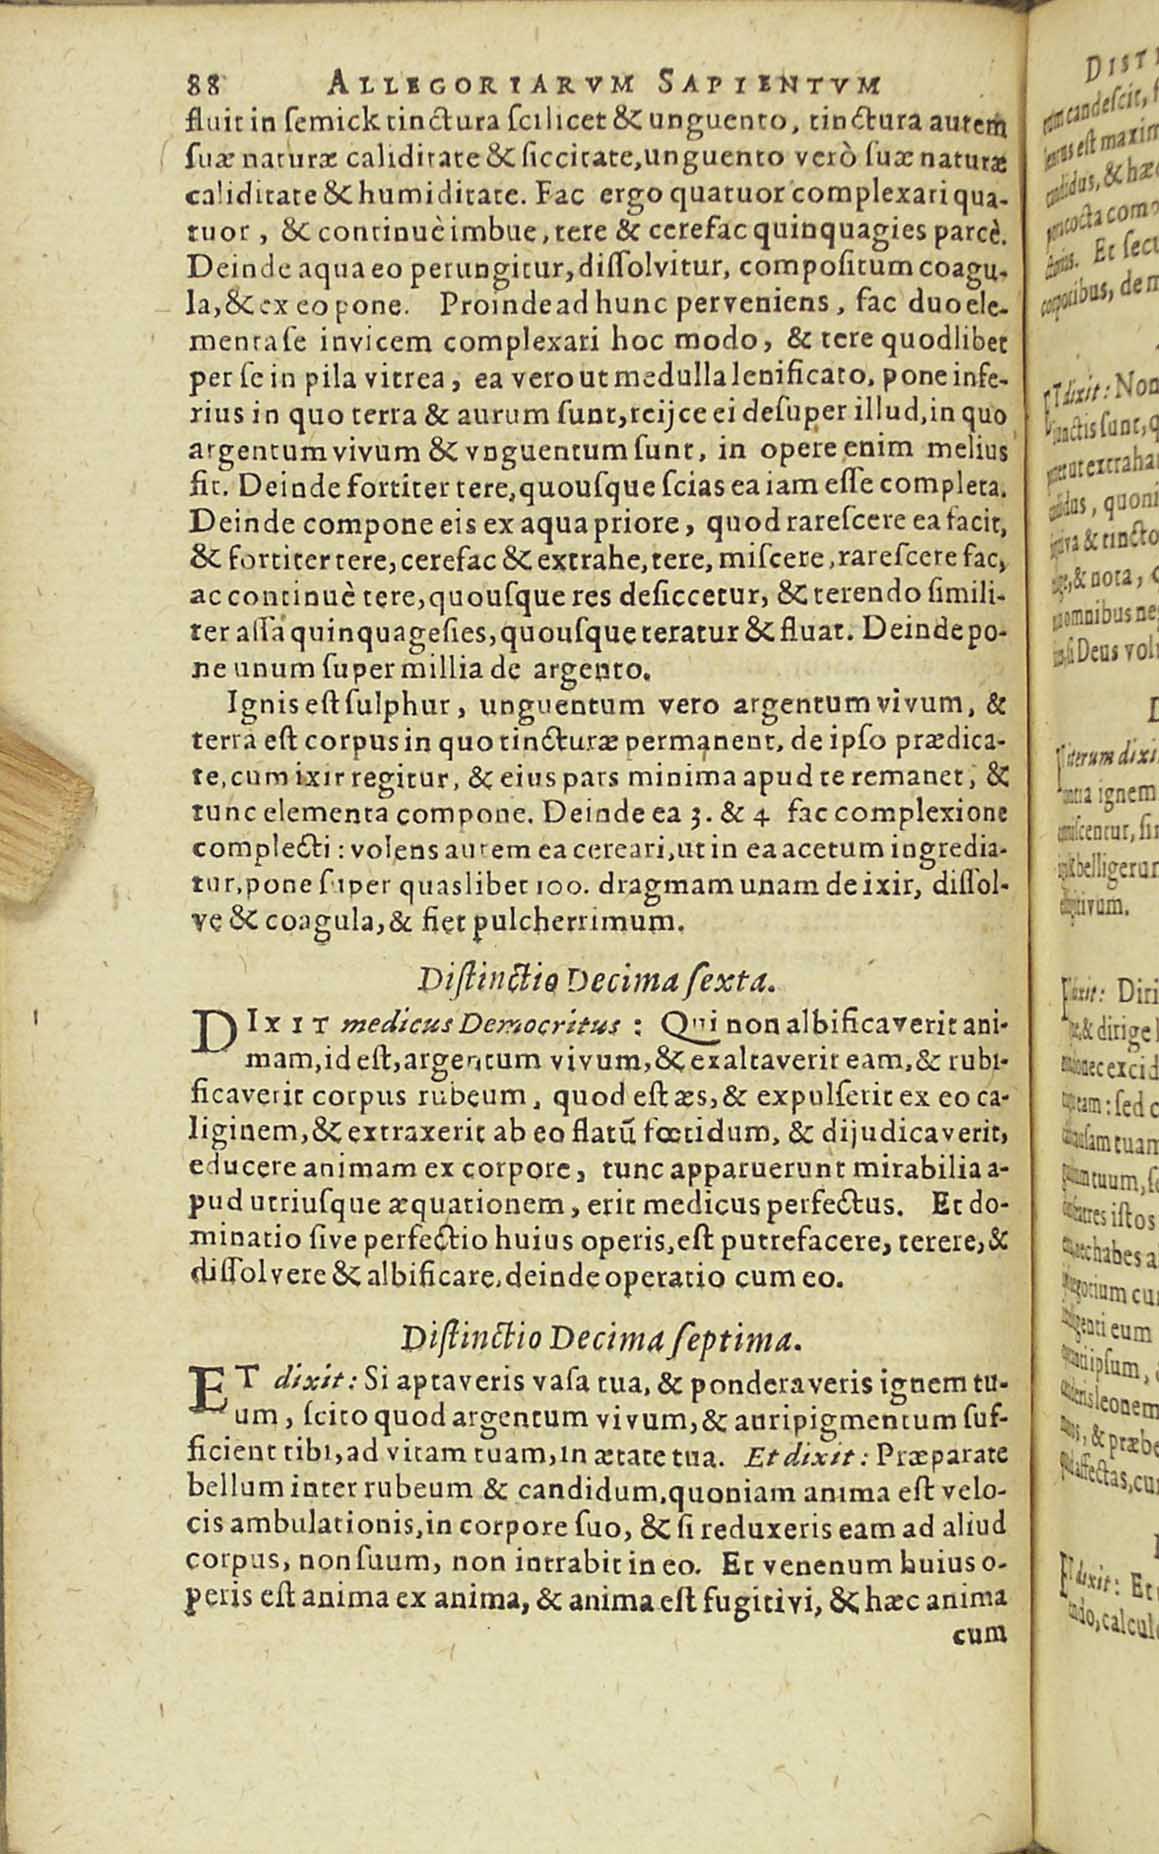 88 ALLEGORIARVM SAPIENTVM
fluit in ſemick tinctura ſcilicet & unguento, tinctura autem
ſuæ naturæ caliditate & ſiccitate, unguento verò ſuæ naturæ
caliditate & humiditate. Fac ergo quatuor complexari qua-
tuor, & continuè imbue, tere & cerefac quinquagies parcè.
Deinde aqua eo perungitur, diſſolvitur, compoſitum coagu-
la, & ex eo pone. Proinde ad hunc perveniens, fac duo ele-
menta ſe invicem complexari hoc modo, & tere quodlibet
per ſe in pila vitrea, ea vero ut medulla lenificato, pone infe-
rius in quo terra & aurum ſunt, reijce ei deſuper illud, in quo
argentum vivum & vnguentum ſunt, in opere enim melius
fit. Deinde fortiter tere, quouſque ſcias ea iam eſſe completa.
Deinde compone eis ex aqua priore, quod rareſcere ea facit,
& fortiter tere, cerefac & extrahe, tere, miſcere, rareſcere fac,
ac continuè tere, quouſque res deſiccetur, & terendo ſimili-
ter aſſa quinquageſies, quouſque teratur & fluat. Deinde po-
ne unum ſuper millia de argento.
Ignis eſt ſulphur, unguentum vero argentum vivum, &
terra eſt corpus in quo tincturæ permanent, de ipſo prædica-
te, cum ixir regitur, & eius pars minima apud te remanet, &
tunc elementa compone. Deinde ea 3. & 4 fac complexione
complecti: volens autem ea cereari, ut in ea acetum ingredia-
tur, pone ſuper quaslibet 100. dragmam unam de ixir, diſſol-
ve & coagula, & fiet pulcherrimum.
Diſtinctio Decima ſexta.
DIXIT medicus Democritus: Qui non albificaverit ani-
mam, id eſt, argentum vivum, & exaltaverit eam, & rubi-
ficaverit corpus rubeum, quod eſt æs, & expulſerit ex eo ca-
liginem, & extraxerit ab eo flatũ fœtidum, & dijudicaverit,
educere animam ex corpore, tunc apparuerunt mirabilia a-
pud utriuſque æquationem, erit medicus perfectus. Et do-
minatio ſive perfectio huius operis, eſt putrefacere, terere, &
diſſolvere & albificare, deinde operatio cum eo.
Diſtinctio Decima ſeptima.
ET dixit: Si aptaveris vaſa tua, & ponderaveris ignem tu-
um, ſcito quod argentum vivum, & auripigmentum ſuf-
ficient tibi, ad vitam tuam, in ætate tua. Et dixit: Præparate
bellum inter rubeum & candidum, quoniam anima eſt velo-
cis ambulationis, in corpore ſuo, & ſi reduxeris eam ad aliud
corpus, non ſuum, non intrabit in eo. Et venenum huius o-
peris eſt anima ex anima, & anima eſt fugitivi, & hæc anima
cum